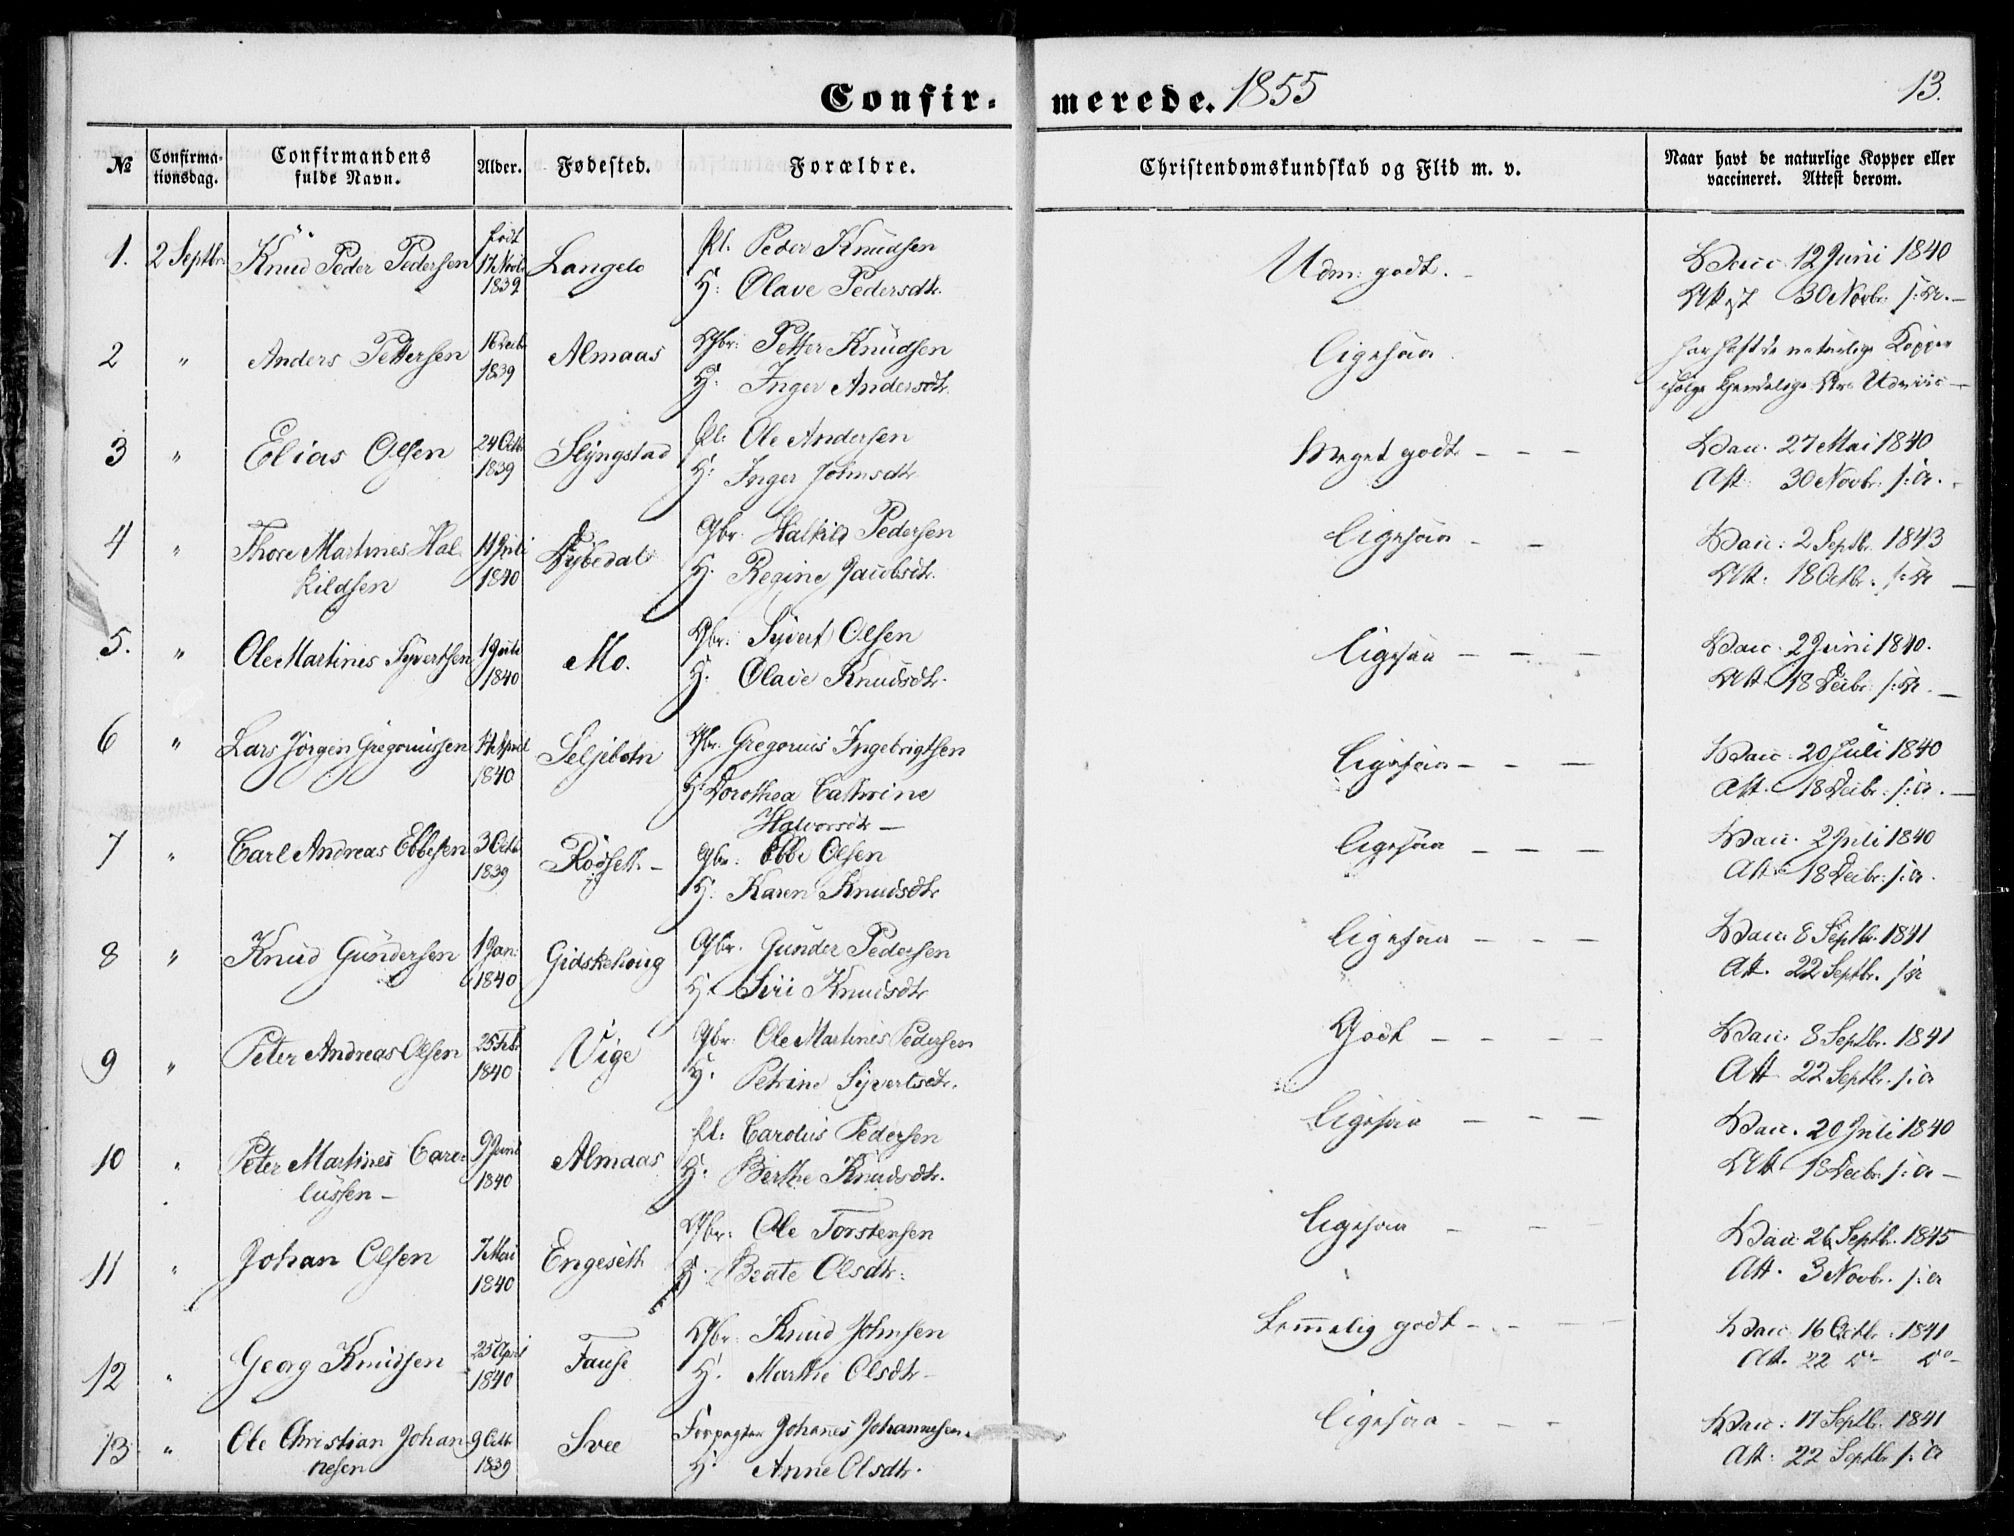 Confirmerede. 1855
13.
№ Confirmationsdag. Confirmandens fulde Navn. Alder. Fødested. Forældre. Christendomskundskab og Flid m. v. Naar havt de naturlige Kopper eller vaccineret. Attest derom.
1. 2 Septbr. Knud Peder Pedersen født 17 Novbr 1839 Langelo Pl: Peder Knudsen Udm: godt. Vacc. 12 Juni 1840
H: Olave Pedersdtr. Attest 30 Novbr. s: A.
2 " Anders Pettersen 16 Decbr 1839 Almaas Gbr: Petter Knudsen ligesaa. har haft de naturlige Kopper
H: Inger Andersdtr. ifølge
3 " Elias Olsen 24 Octbr 1839 Slyngstad Pl: Ole Andersen Meget godt - - - Vacc. 27 Mai 1840
H: Inger Johnsdtr Att. 30 Novbr. s: A.
4 " Thore Martines Halkildsen 14 Juli 1840 Dybedal Gbr. Halkild Pedersen ligesaa - - Vacc: 2 Septbr. 1843
H. Regine Jacobsdtr. Att: 18 Octbr. s: A
5. " Ole Martines Syvertsen 1 Juli 1840 Mo. Gbr. Syvert Olsen ligesaa - - - Vacc. 2 Juni 1840.
H. Olave Knudsdtr. Att. 18 Decbr. s: A.
6 " Lars Jörgen Gregoriussen 14 April 1840 Seljebotn Gbr. Gregorius Ingebrigtsen ligesaa - - - Vacc. 20 Juli 1840
H: Dorothea Cathrine Halvorsdtr - Att. 18 Decbr: s: A.
7 " Carl Andreas Ebbesen 3 Octbr 1839 Rödseth - Gbr. Ebbe Olsen ligesaa - - - Vacc. 2 Juli 1840
H. Karen Knudsdtr Att. 18 Decbr: s: A.
8 " Knud Gundersen 1 Jan: 1840 Gidskehoug Gbr. Gunder Pedersen ligesaa - - - Vacc. 8 Septbr. 1841
H. Siri Knudsdtr Att. 22 Septbr. s: A
9 " Peter Andreas Olsen 25 Feb 1840 Vige Gbr. Ole Martines Pedersen Godt - - - - Vacc: 8 Septbr. 1841
H. Petrine Syvertsdtr. Att. 22 Septbr. s: A
10 " Peter Martines Carolussen - 9 Juni 1840 Almaas Pl: Carolus Pedersen ligesaa - - - Vacc. 20 Juli 1840
H. Berthe Knudsdtr. Att 18 Decbr. s: A -
11 " Johan Olsen 7 Mai 1840 Engeseth Gbr: Ole Torstensen ligesaa - - - Vacc. 26 Septbr. 1845
H. Beate Olsdtr: Att. 3 Novbr. s: A
12 " Georg Knudsen 25 April 1840 Fause Gbr: Knud Johnsen Temmelig godt - - - - Vacc. 16 Octbr. 1841
H. Marthe Olsdtr - Att. 22 do do
13 " Ole Christian Johannesen 9 Octbr 1839 Svee Forpagter Johanes Johannesen. ligesaa - - - Vacc: 17 Septbr. 1841
H. Anne Olsdtr. Att: 22 Septbr s: A